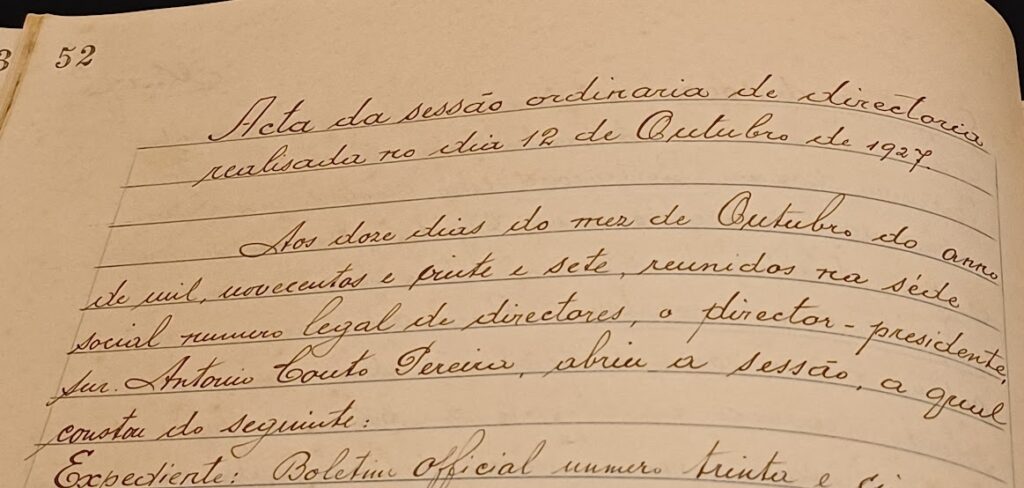 52
Acta da sessão ordinaria de directoria
realisada no dia 12 de Outubro de 1927
Aos doze dias do mez de Outubro do anno
de mil, novecentos e vinte e sete, reunidos na séde
social numero legal de directores, o director-presidente,
snr. Antonio Couto Pereira, abriu a sessão, a qual
constou do seguinte:
Expediente: Boletim Official numero trinta e